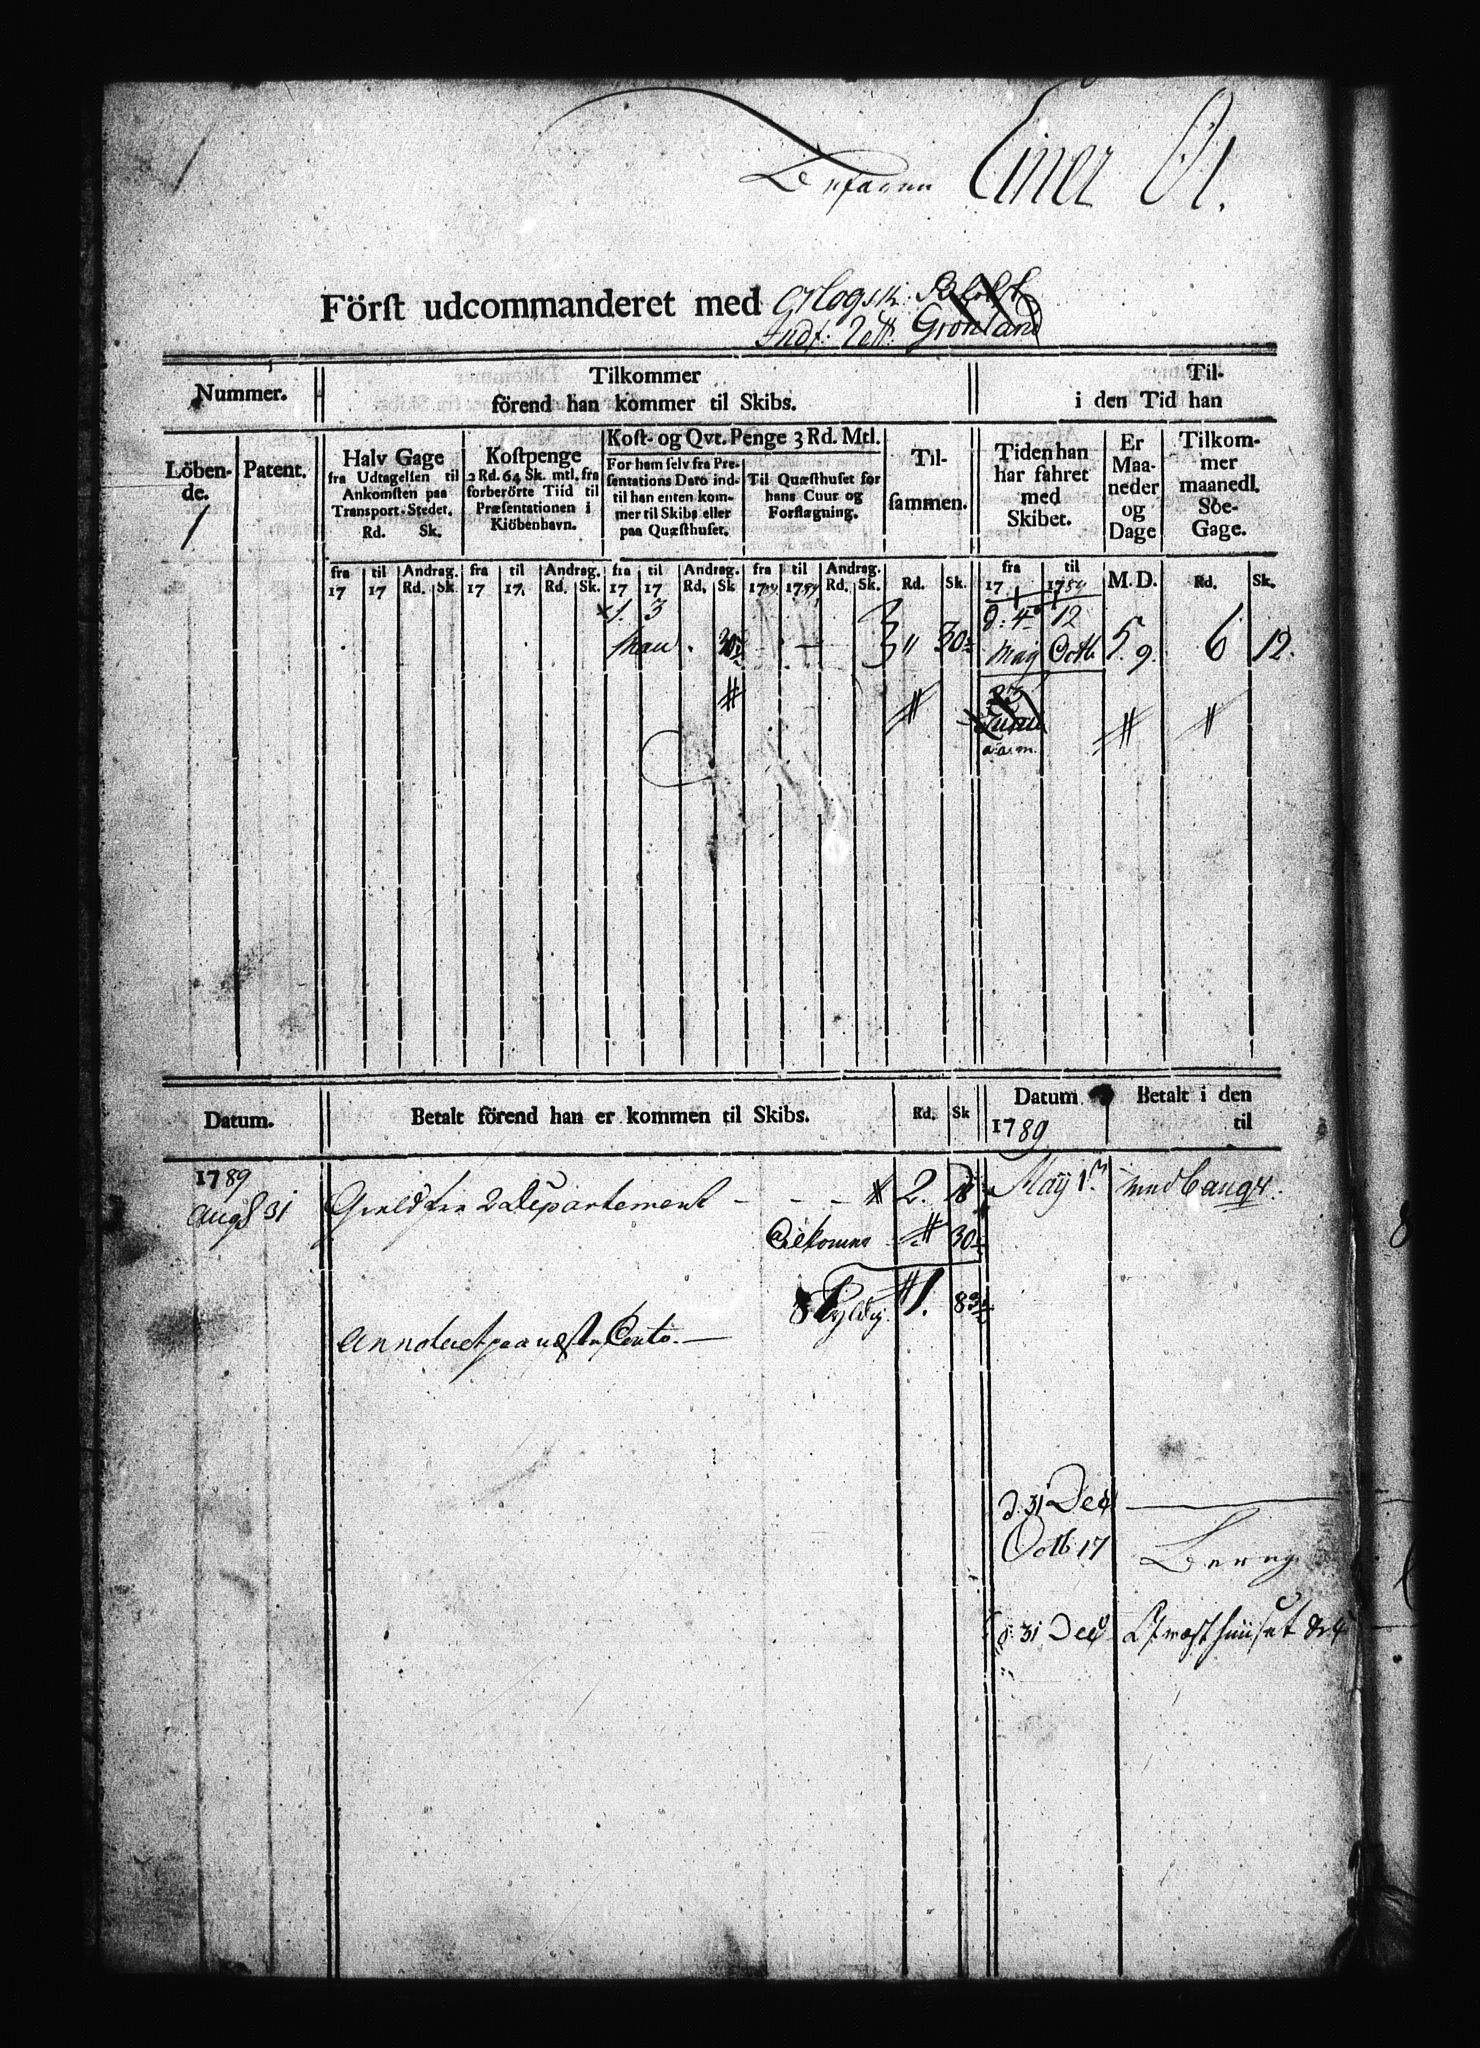 Einer Ol.
Först udcommanderet med Orlogsk:
Indf: Grönland
Nummer.
Tilkommer
förend han kommer til Skibs.
Til-
i den Tid han
Löben-
de.
Patent.
1
Halv Gage
fra Udtagelsen til
Ankomsten paa
Transport-Stedet.
Rd. Sk.
Kostpenge
2 Rd. 64 Sk. mtl. fra
forberörte Tiid til
Præsentationen i
Kiöbenhavn.
Kost- og Qvt. Penge 3 Rd. Mtl.
For ham selv fra Pre-
sentations Dato ind-
til han enten kom-
mer til Skibs eller
paa Quæsthuset.
Til Quæsthuset for
hans Cuur og
Forflægning.
Til-
sammen.
Tiden han
har fahret
med
Skibet.
Er
Maa-
neder
og
Dage
Tilkom-
mer
maanedl.
Söe-
Gage.
fra til Andrag. fra til Andrag. fra til Andrag. fra til Andrag. fra til
17 17 Rd. Sk 17 17 Rd. Sk. 17 17 Rd. Sk 1789 1789 Rd. Sk. Rd. Sk. 17 1789 M. D. Rd. Sk.
1. 3 d: 4 12
30 May Octb 5. 9. 6 12.
23
Datum.
Betalt förend han er kommen til Skibs.
Rd. Sk
Datum
1789
Betalt i den
til
1789
Aug 31 Giæld fra 2 Departement 2. May 1 med
30
Skyldig 1.
Annoteret paa næste Conto.
d. 31 Dec
Octb 17
d. 31 Dec Qvæsthuuset